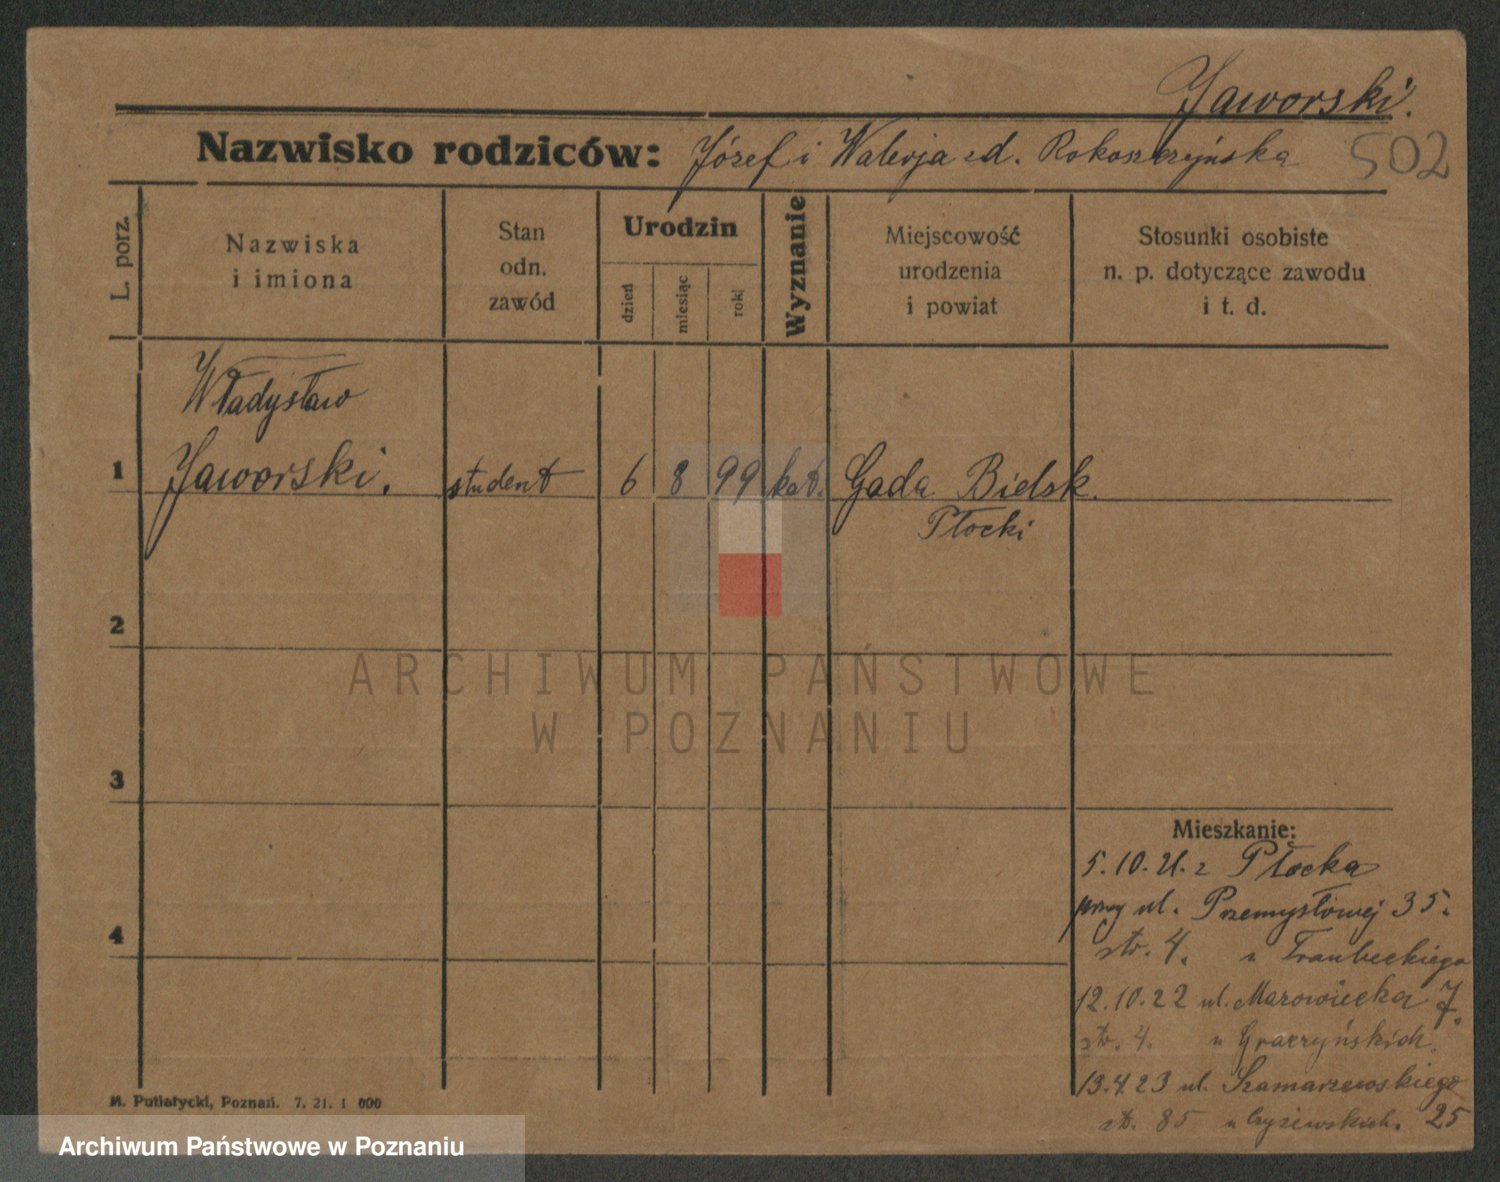 Jaworski.
Nazwisko rodziców: Józef i Walerja zd. Rokoszczyńska 502
L. porz.
Nazwiska
i imiona
Stan
odn.
zawód
Urodzin
dzień
miesiąc
rok
Wyznanie
Miejscowość
urodzenia
i powiat
Stosunki osobiste
n. p. dotyczące zawodu
i t. d.
Władysław
1 Jaworski. student 6 8 99 kat. Gada Bielsk.
Płocki
2
ARCHIWUM PAŃSTWOWE
W POZNANIU
3
Mieszkanie:
5.10.21. z Płocka
przy ul. Przemysłowej 35.
4
str. 4. u Traubeckiego
12.10.22 ul. Mazowiecka 7.
str. 4. u Graczyńskich.
13.4.23 ul. Szamarzewskiego
25
st. 85 u Czyżewskich.
M. Putiatycki, Poznań. 7. 21. 1 000
Archiwum Państwowe w Poznaniu